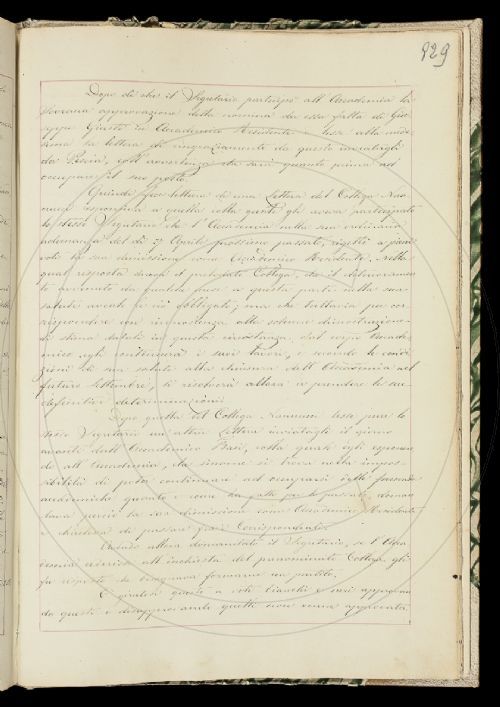 929
Dopo di che il Segretario partecipò all'Accademia la
Sovrana approvazione della nomina da essa fatta di Giu-
seppe Giusti in Accademico Residente e lesse alla mede-
sima la lettera di ringraziamento da questo inviatagli
da Pescia, coll'avvertenza che sarà quanto prima ad
occupare il suo posto.
Quindi fece lettura di una lettera del Collega Nan-
nucci responsiva a quella colla quale gli aveva partecipato
lo stesso Segretario che l'Accademia nella sua ordinaria
adunanza del dì 27 Aprile prossimo passato, rigettò a pieni
voti la sua dimissione come Accademico Residente. Nella
qual risposta dice il prelodato Collega, che il
avanzato da qualche mese a questa parte nella sua
salute avealo a ciò obbligato; ma che tuttavia per cor-
rispondere con alla solenne dimostrazione
di stima datali in questa circostanza dal corpo Accade-
mico egli continuerà i suoi lavori, e secondo le condi-
zioni di sua salute alla chiusura dell'Accademia nel
futuro Settembre, si risolverà allora a prendere le sue
definitive determinazioni.
Dopo quella del Collega Nannucci lesse pure lo
stesso Segretario un'altra lettera inviatagli il giorno
avanti dall'Accademico colla quale egli esponen-
do all'Accademia, che siccome si trova nella impos-
sibilità di poter continuare ad occuparsi delle faccende
accademiche quanto e come ha fatto per lo passato, doman-
dava perciò la sua dimissione come Accademico Residente
e chiedeva di passare fra i Corrispondenti.
Avendo allora domandato il Segretario, se l'Acca-
demia aderiva all'inchiesta del prenominato Collega, gli
fu risposto che bisognava formarne un partito.
E giratosi questo a voti bianchi e neri approvan-
do questi e disapprovando quelli non venne approvata.